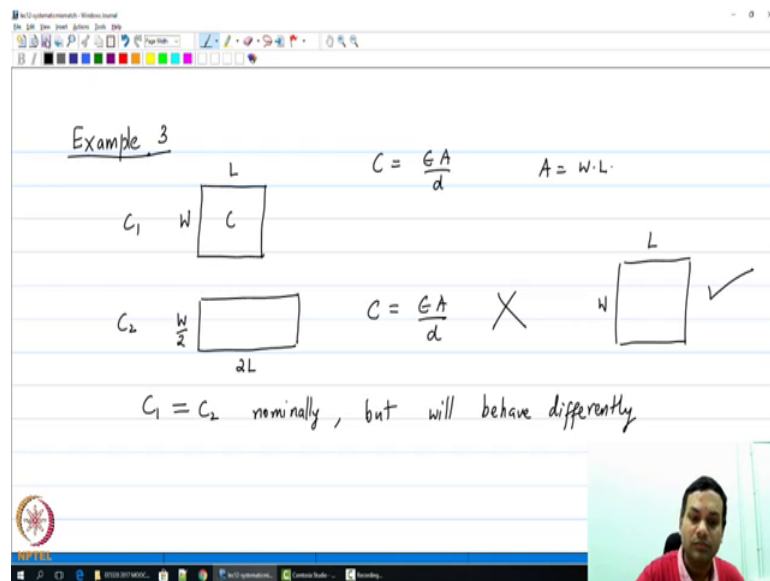 lec12-systematicmismatch - Windows Journal
File Edit View Insert Actions Tools Help
Page Width
B I
Example 3
L
C = ϵA/d
A = W.L.
C₁
W
C
L
C₂
W/2
C = ϵA/d
X
W
2L
C₁ = C₂ nominally, but will behave differently
NPTEL
Camtasia Studio - ...
Recording...